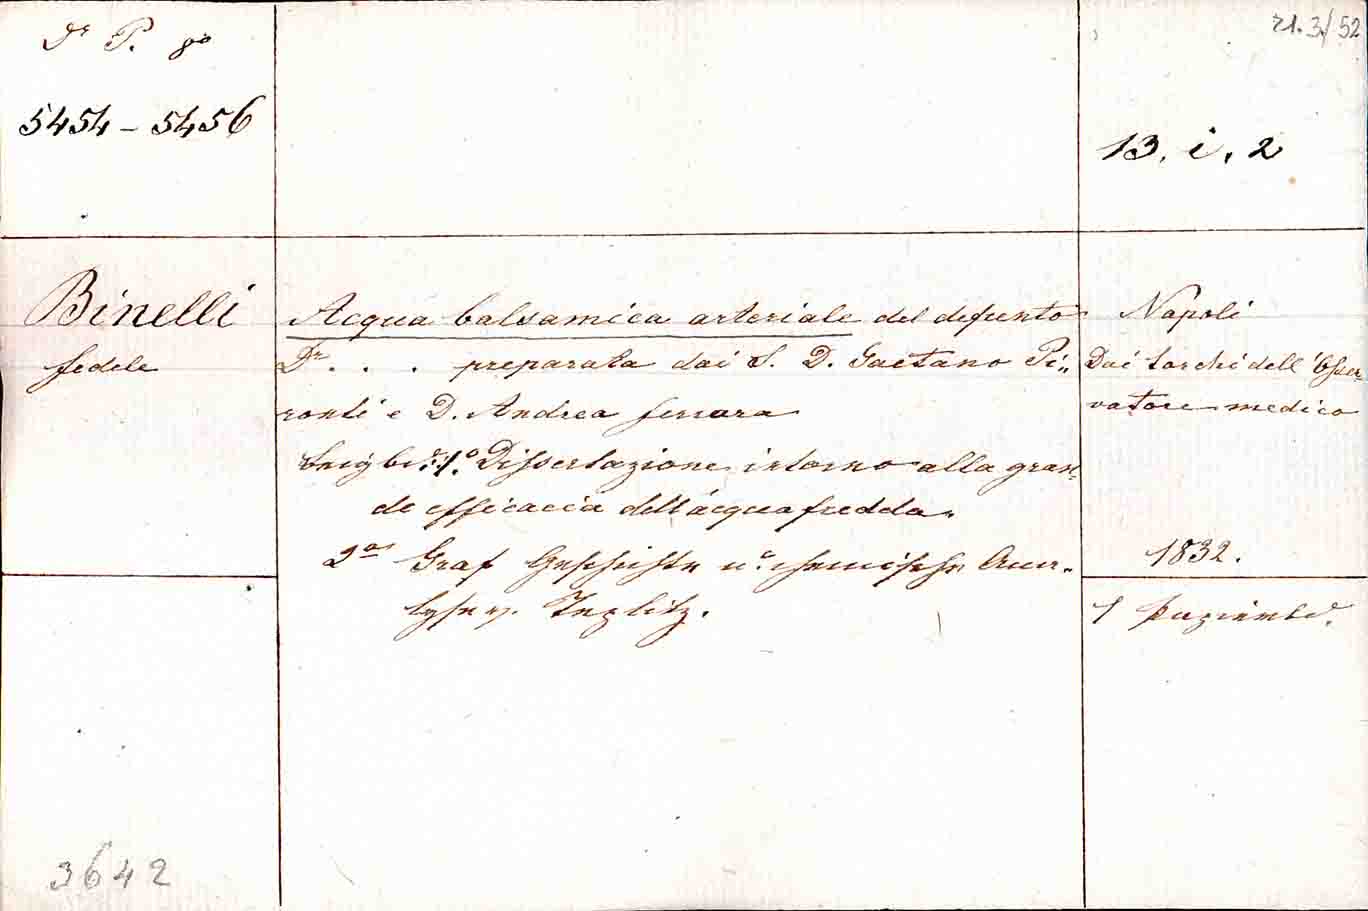 Dr P. 8o
21.3./52
5454 - 5456
13. i. 2
Binelli
fedele
Acqua balsamica arteriale del defunto
Dr . . . preparata dai S. D. Gaetano Pi„
ronti e D. Andrea ferrara
1o Dissertazione intorno alla gran„
de efficacia dell'acqua fredda„
2o Graf Geschichte u. chemische Ana„
lyse v. Teplitz.
Napoli
Dai torchi dell'Osser„
vatore medico
1832.
1
3642